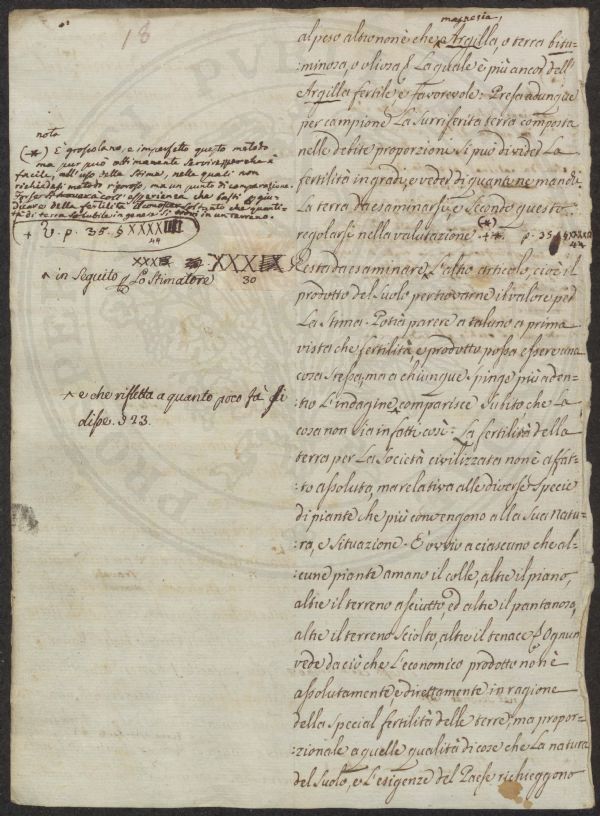 18
magnesia,
al peso altro non è che ^ Argilla, o terra bitu=
:minosa, o oliosa la quale è più ancor dell'
Argilla fertile e favorevole: Presa dunque
per campione la surriferita terra composta
nelle debite proporzioni si può divider la
fertilità in gradi, e veder di quanto ne manchi
la terra da esaminarsi, e secondo questo
regolarsi nella valutazione (*)
Resta da esaminare ^ l'altro articolo, cioè il
prodotto del Suolo per trovarne il valore per
la Stima. Potrà parere a taluno a prima
vista che fertilità e prodotto possa essere una
cosa stessa, ma a chiunque spinge più aden=
tro l'indagine ^ comparisce subito, che la
cosa non sia infatti così: La fertilità della
terra per la Società civilizzata non è affat=
:to assoluta, ma relativa alle diverse specie
di piante che più convengono alla sua natu=
:ra, e situazione. È ovvio a ciascuno che al=
:cune piante amano il colle, altre il piano,
altre il terreno asciutto, ed altre il pantanoso,
altre il terreno sciolto, altre il tenace Ognun
vede da ciò che l'economico prodotto non è
assolutamente e direttamente in ragione
della special fertilità delle terre, ma propor=
:zionale a quelle qualità di cose che la natura
del Suolo, e l'esigenze del Paese richieggono
nota
(*) È grossolano, e imperfetto questo metodo
ma pur può ottimamente servire perchè è
facile, all'uso della Stima, nella quale non
richiedesi metodo rigoroso, ma un punto di comparazione.
della fertilità il conoscer soltanto che quanti=
tà di terra solubile in genere si trovi in un terreno.
+ V. p. 35. § XXXX
44
^ in seguito Lo Stimatore XXXIX
30
^ e che rifletta a quanto poco fà si
disse. § 23.